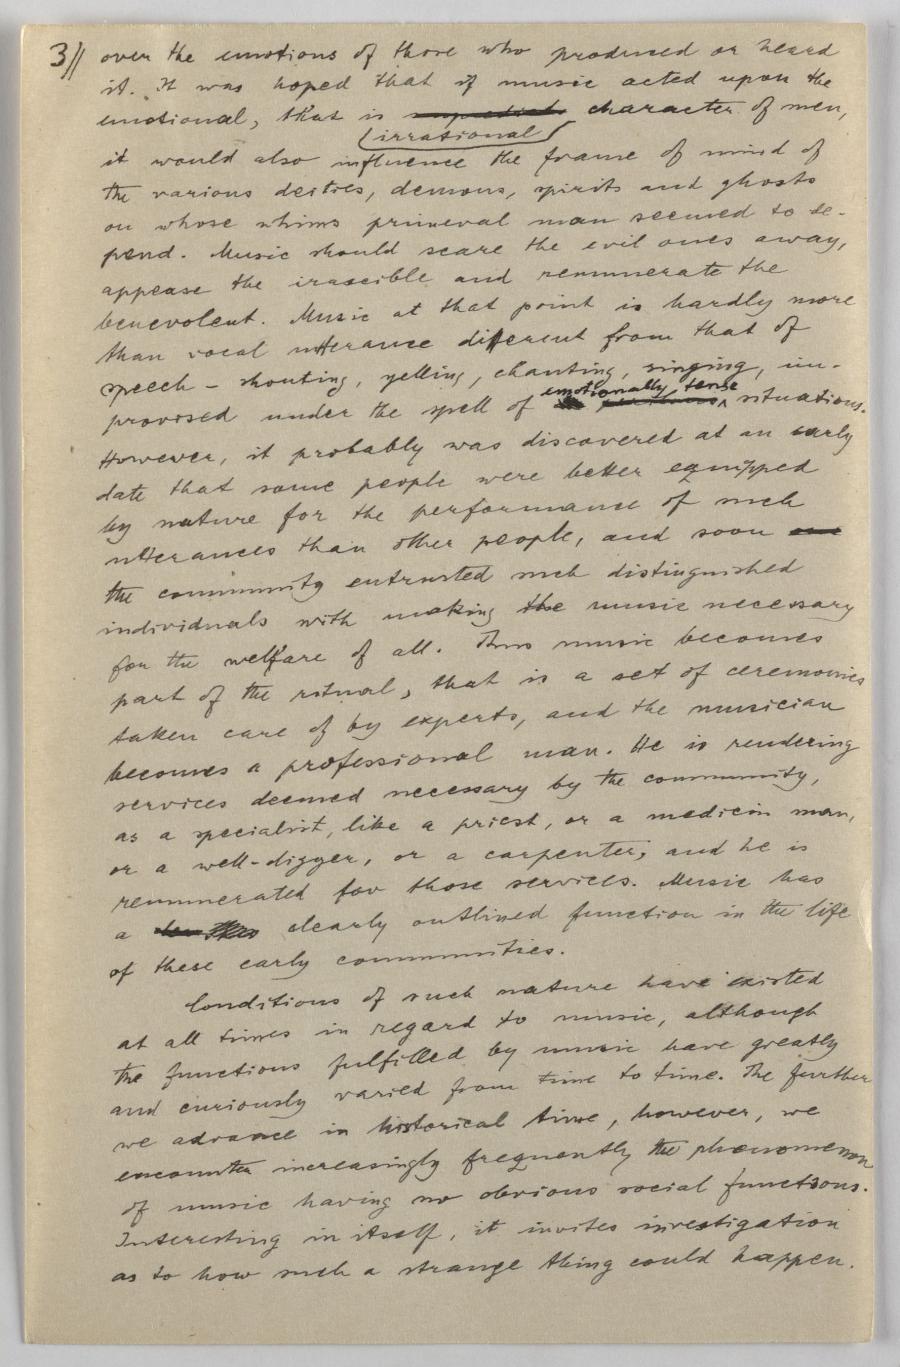 3// over the emotions of those who produced or heard
it. It was hoped that if music acted upon the
emotional, that is character of men,
(irrational)
it would also influence the frame of mind of
the various deities, demons, spirits and ghosts
on whose whims primeval man seemed to de-
pend. Music should scare the evil ones away,
appease the irascible and remunerate the
benevolent. Music at that point is hardly more
than vocal utterance different from that of
speech – shouting, yelling, chanting, singing, im-
emotionally tense
provised under the spell of situations.
However, it probably was discovered at an early
date that some people were better equipped
by nature for the performance of such
utterances than other people, and soon
the community entrusted such distinguished
individuals with making the music necessary
for the welfare of all. Thus music becomes
part of the ritual, that is a set of ceremonies
taken care of by experts, and the musician
becomes a professional man. He is rendering
services deemed necessary by the community,
as a specialist, like a priest, or a medicin man,
or a well-digger, or a carpenter, and he is
remunerated for those services. Music has
a clearly outlined function in the life
of these early communities.
Conditions of such nature have existed
at all times in regard to music, although
the functions fulfilled by music have greatly
and curiously varied from time to time. The further
we advance in historical time, however, we
encounter increasingly frequently the phenomenon
of music having no obvious social functions.
Interesting in itself, it invites investigation
as to how such a strange thing could happen.